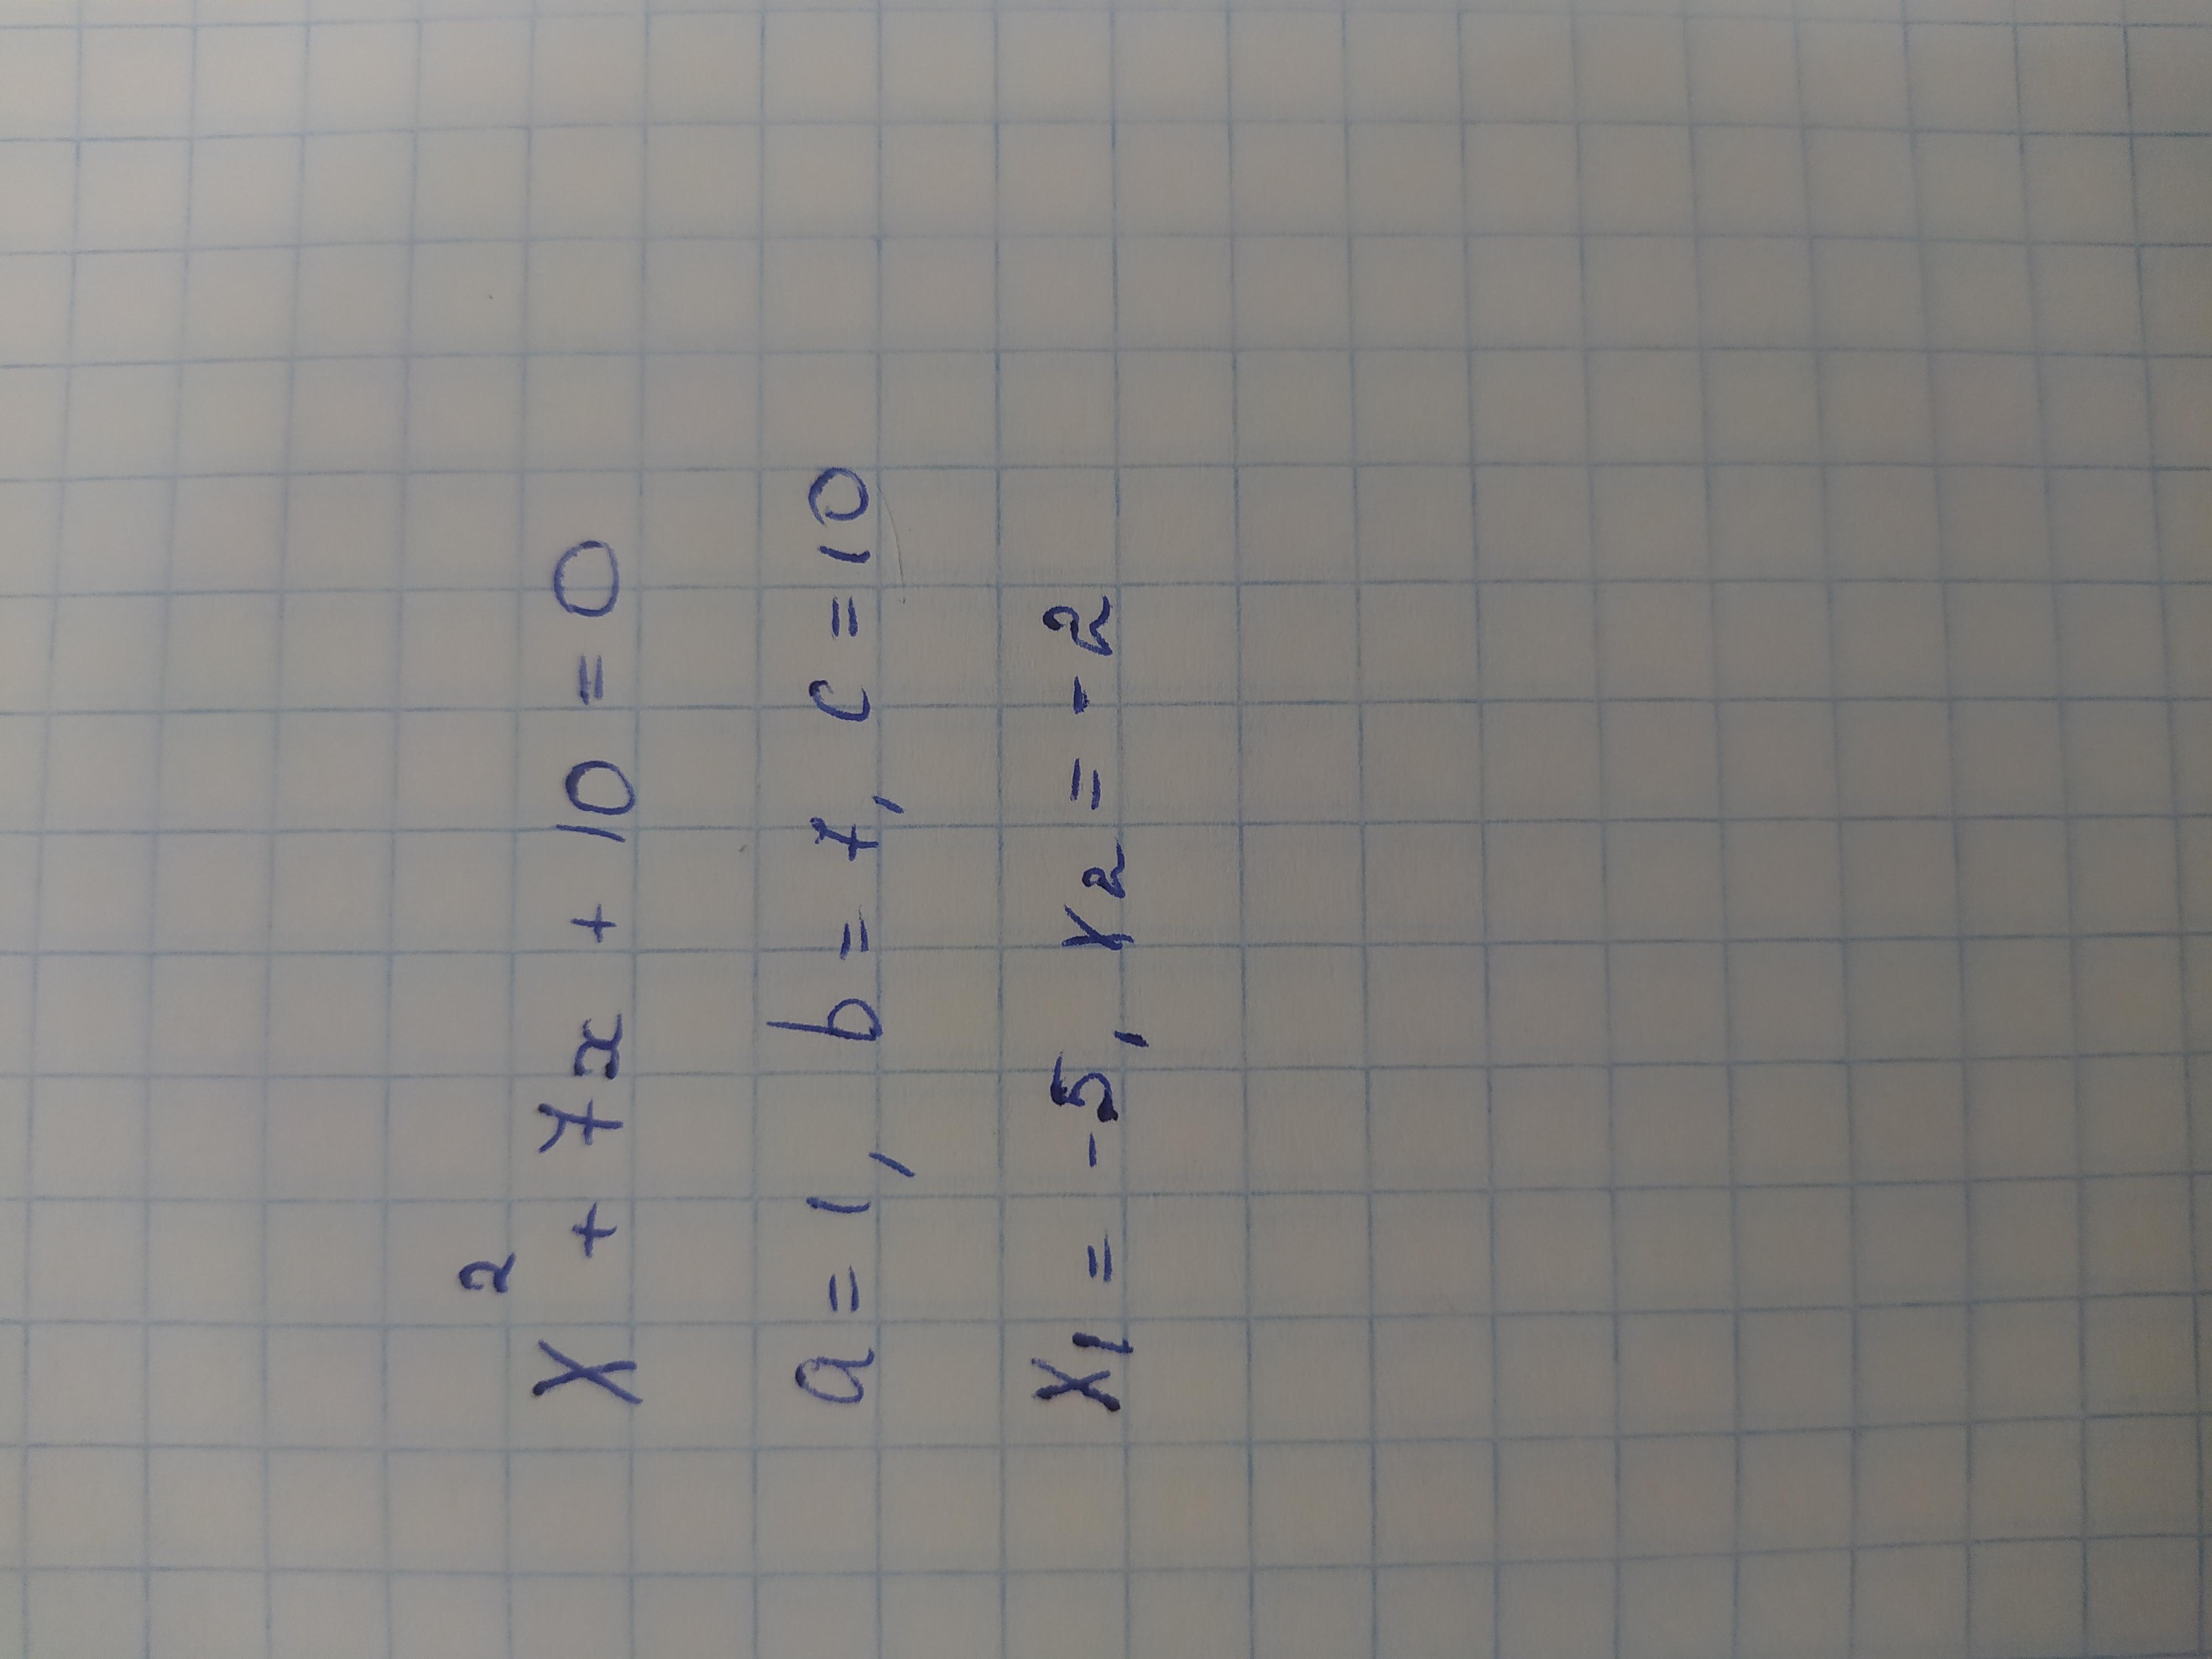 x² + 7x + 10 = 0
a = 1, b = 7, c = 10
x₁ = -5, x₂ = -2